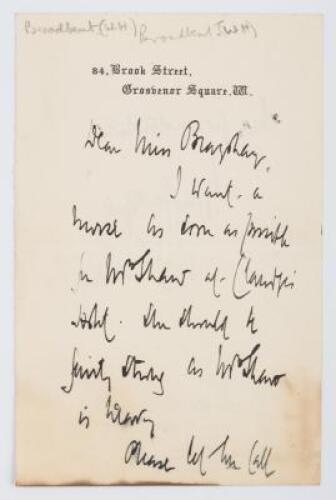 Broadbent (WH) Broadbent (WH)
84, Brook Street,
Grosvenor Square, W.
Dear Miss
I want a
Nurse as soon as possible
for Mrs Shaw at Claridges
Hotel. She should be
fairly strong as Mrs Shaw
is heavy
Please let her call